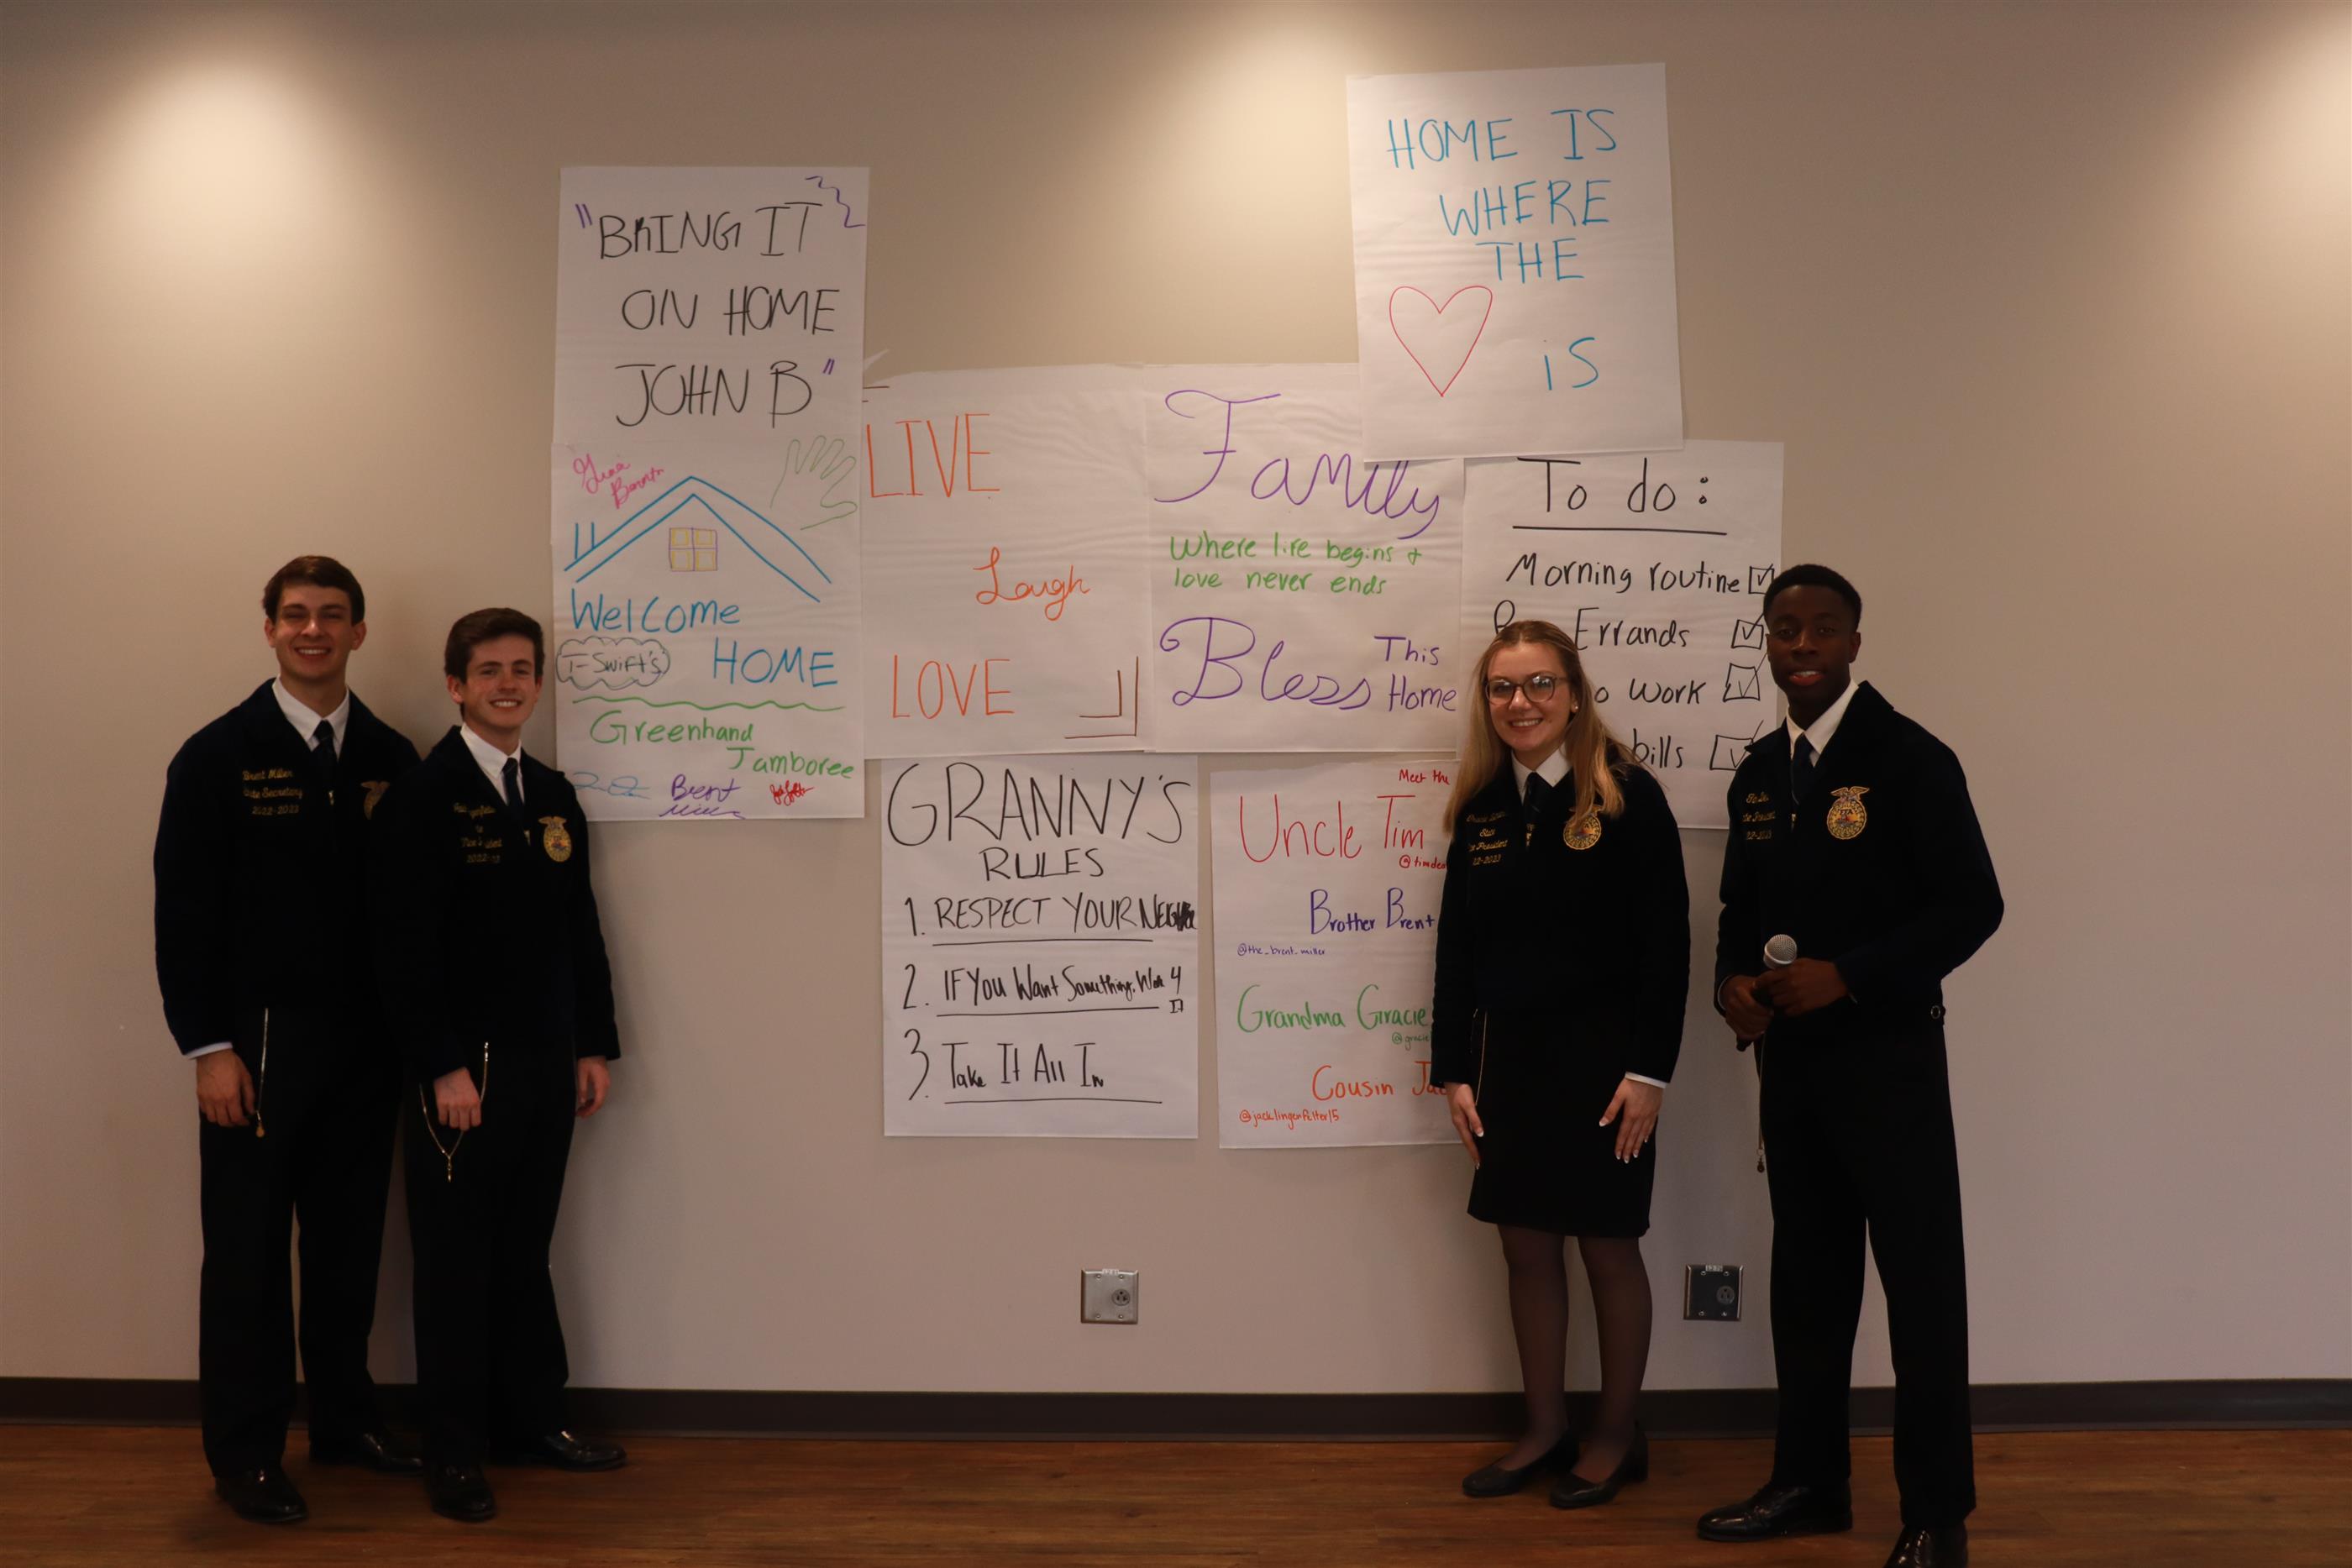 "BRING IT
ON HOME
JOHN B"
Welcome
T-Swift's
HOME
Greenhand
Jamboree
Brent
Miller
LIVE
Laugh
LOVE
Family
Where life begins &
love never ends
Bless This
Home
HOME IS
WHERE
THE
iS
To do:
Morning routine
Errands
Work
bills
GRANNY'S
RULES
1. RESPECT YOUR
2. IF You Want Something, Work 4
IT
3. Take It All In
Meet the
Uncle Tim
Brother Brent
@the_brent_miller
Grandma Gracie
@gracie
Cousin
@jacklingenfelter15
Brent Miller
Secretary
2022-2023
Vice President
President